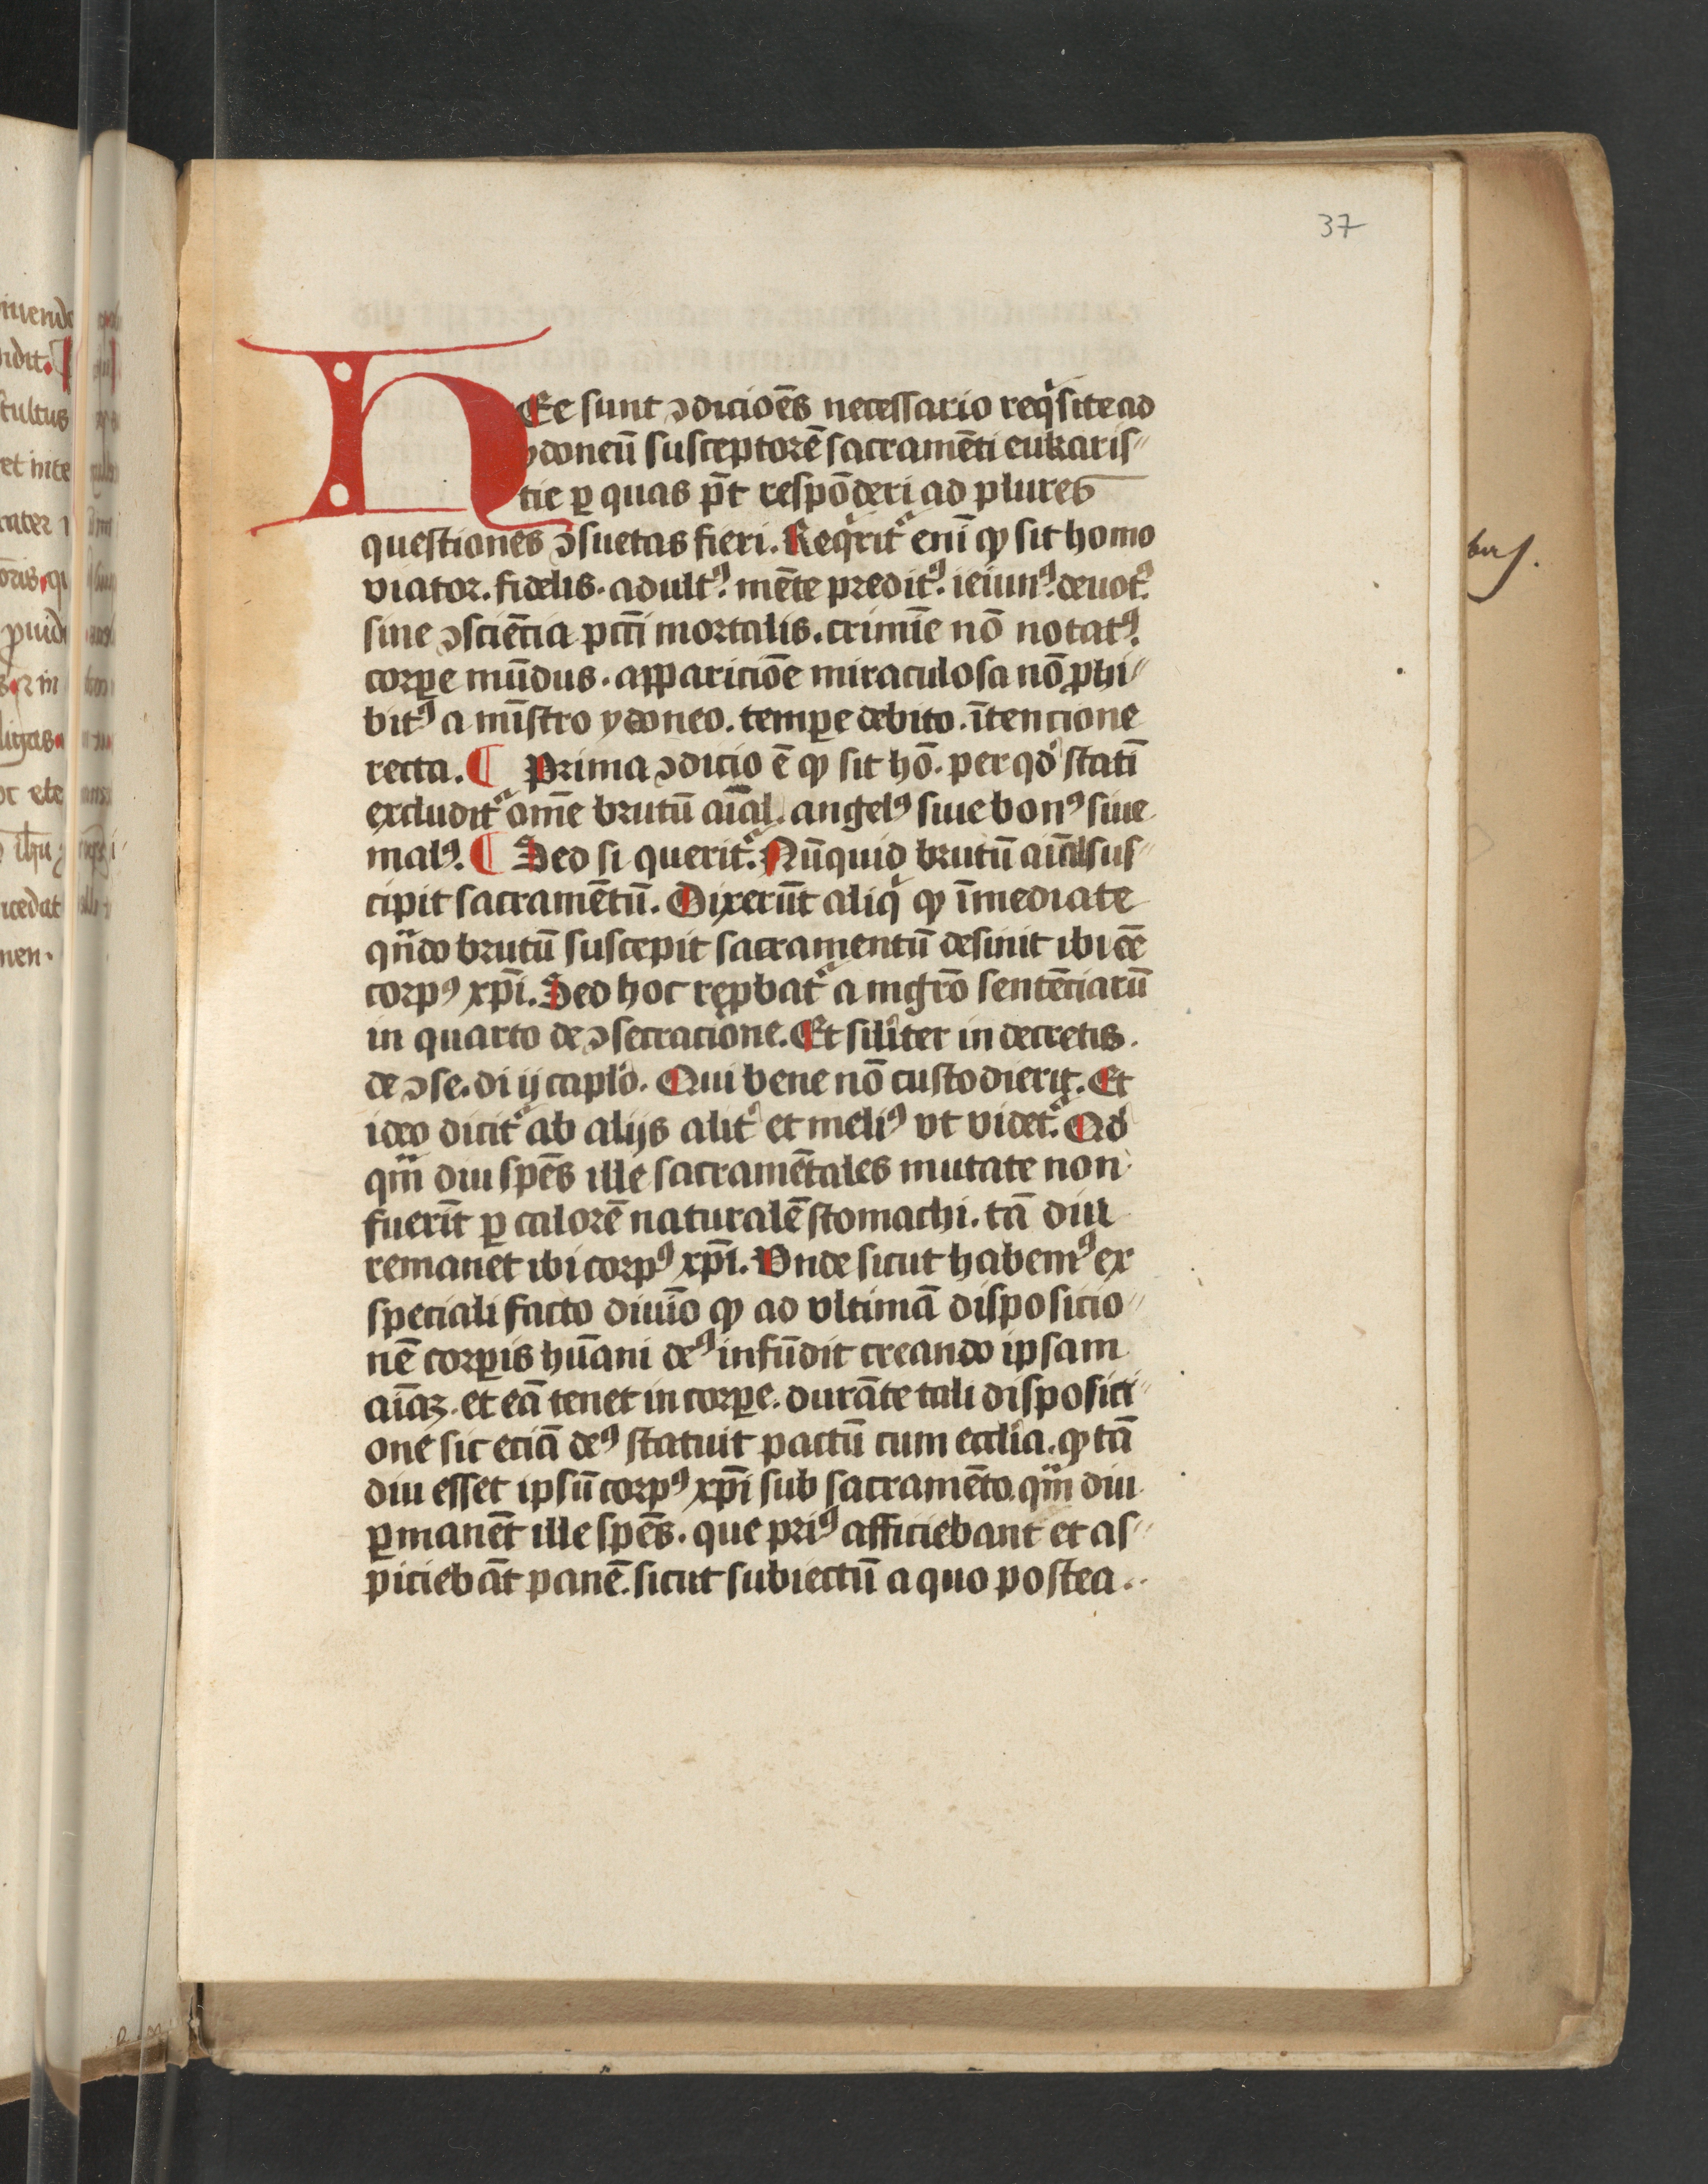 37
HEc sunt ↄdicioēs necessario reqͥsite ad
ydoneū susceptorē sacramēti eukaris⸗
tie ꝑ quas pn̄t respōderi ad plures
questiones ↄsuetas fieri. Reqͥritᷓ enī ꝙ sit homo
viator. fidelis. adultꝰ. mēte preditꝰ. ieiunꝰ. deuotꝰ.
sine ↄsciēcia pctī mortalis. crimīe nō notatꝰ.
corꝑe mūdus. apparicioē miraculosa nō ꝓhi⸗
bitꝰ a mīstro ydoneo. temꝑe debito. ītencione
recta. ¶ Prima ↄdicio ē ꝙ sit hō. per qd̓ statī
excluditᷓ om̄e brutū aīal. angelꝰ siue bonꝰ siue
malꝰ. ¶ Sed si queritᷓ. Nūquid brutū aīal sus⸗
cipit sacramētū. Dixerūt aliqͥ ꝙ īmediate
qn̄do brutū suscepit sacramentū desinit ibi eē
corpꝰ xp̄i. Sed hoc reꝓbatᷓ a mgrō sentēciarū
in quarto de ↄsecracione. Et silīter in decretis.
de ↄse. di ij caplō. Qui bene nō custodierit. Et
ideo dicitᷓ ab alijs alit̓ et meliꝰ vt videtᷓ. Qd̓
qm̄ diu spēs ille sacramētales mutate non
fuerīt ꝑ calorē naturalē stomachi. tā diu
remanet ibi corpꝰ xp̄i. Vnde sicut habemꝰ ex
speciali facto diuīo ꝙ ad vltimā disposicio⸗
nē corꝑis hūani deꝰ infūdit creando ipsam
aīaꝫ. et eā tenet in corꝑe. durāte tali disposici⸗
one sic eciā deꝰ statuit pactū cum ecclīa. ꝙ tā
diu esset ipsū corpꝰ xp̄i sub sacramēto. qm̄ diu
ꝑmanēt ille spēs. que priꝰ afficiebant et as⸗
piciebāt panē. sicut subiectū a quo postea..